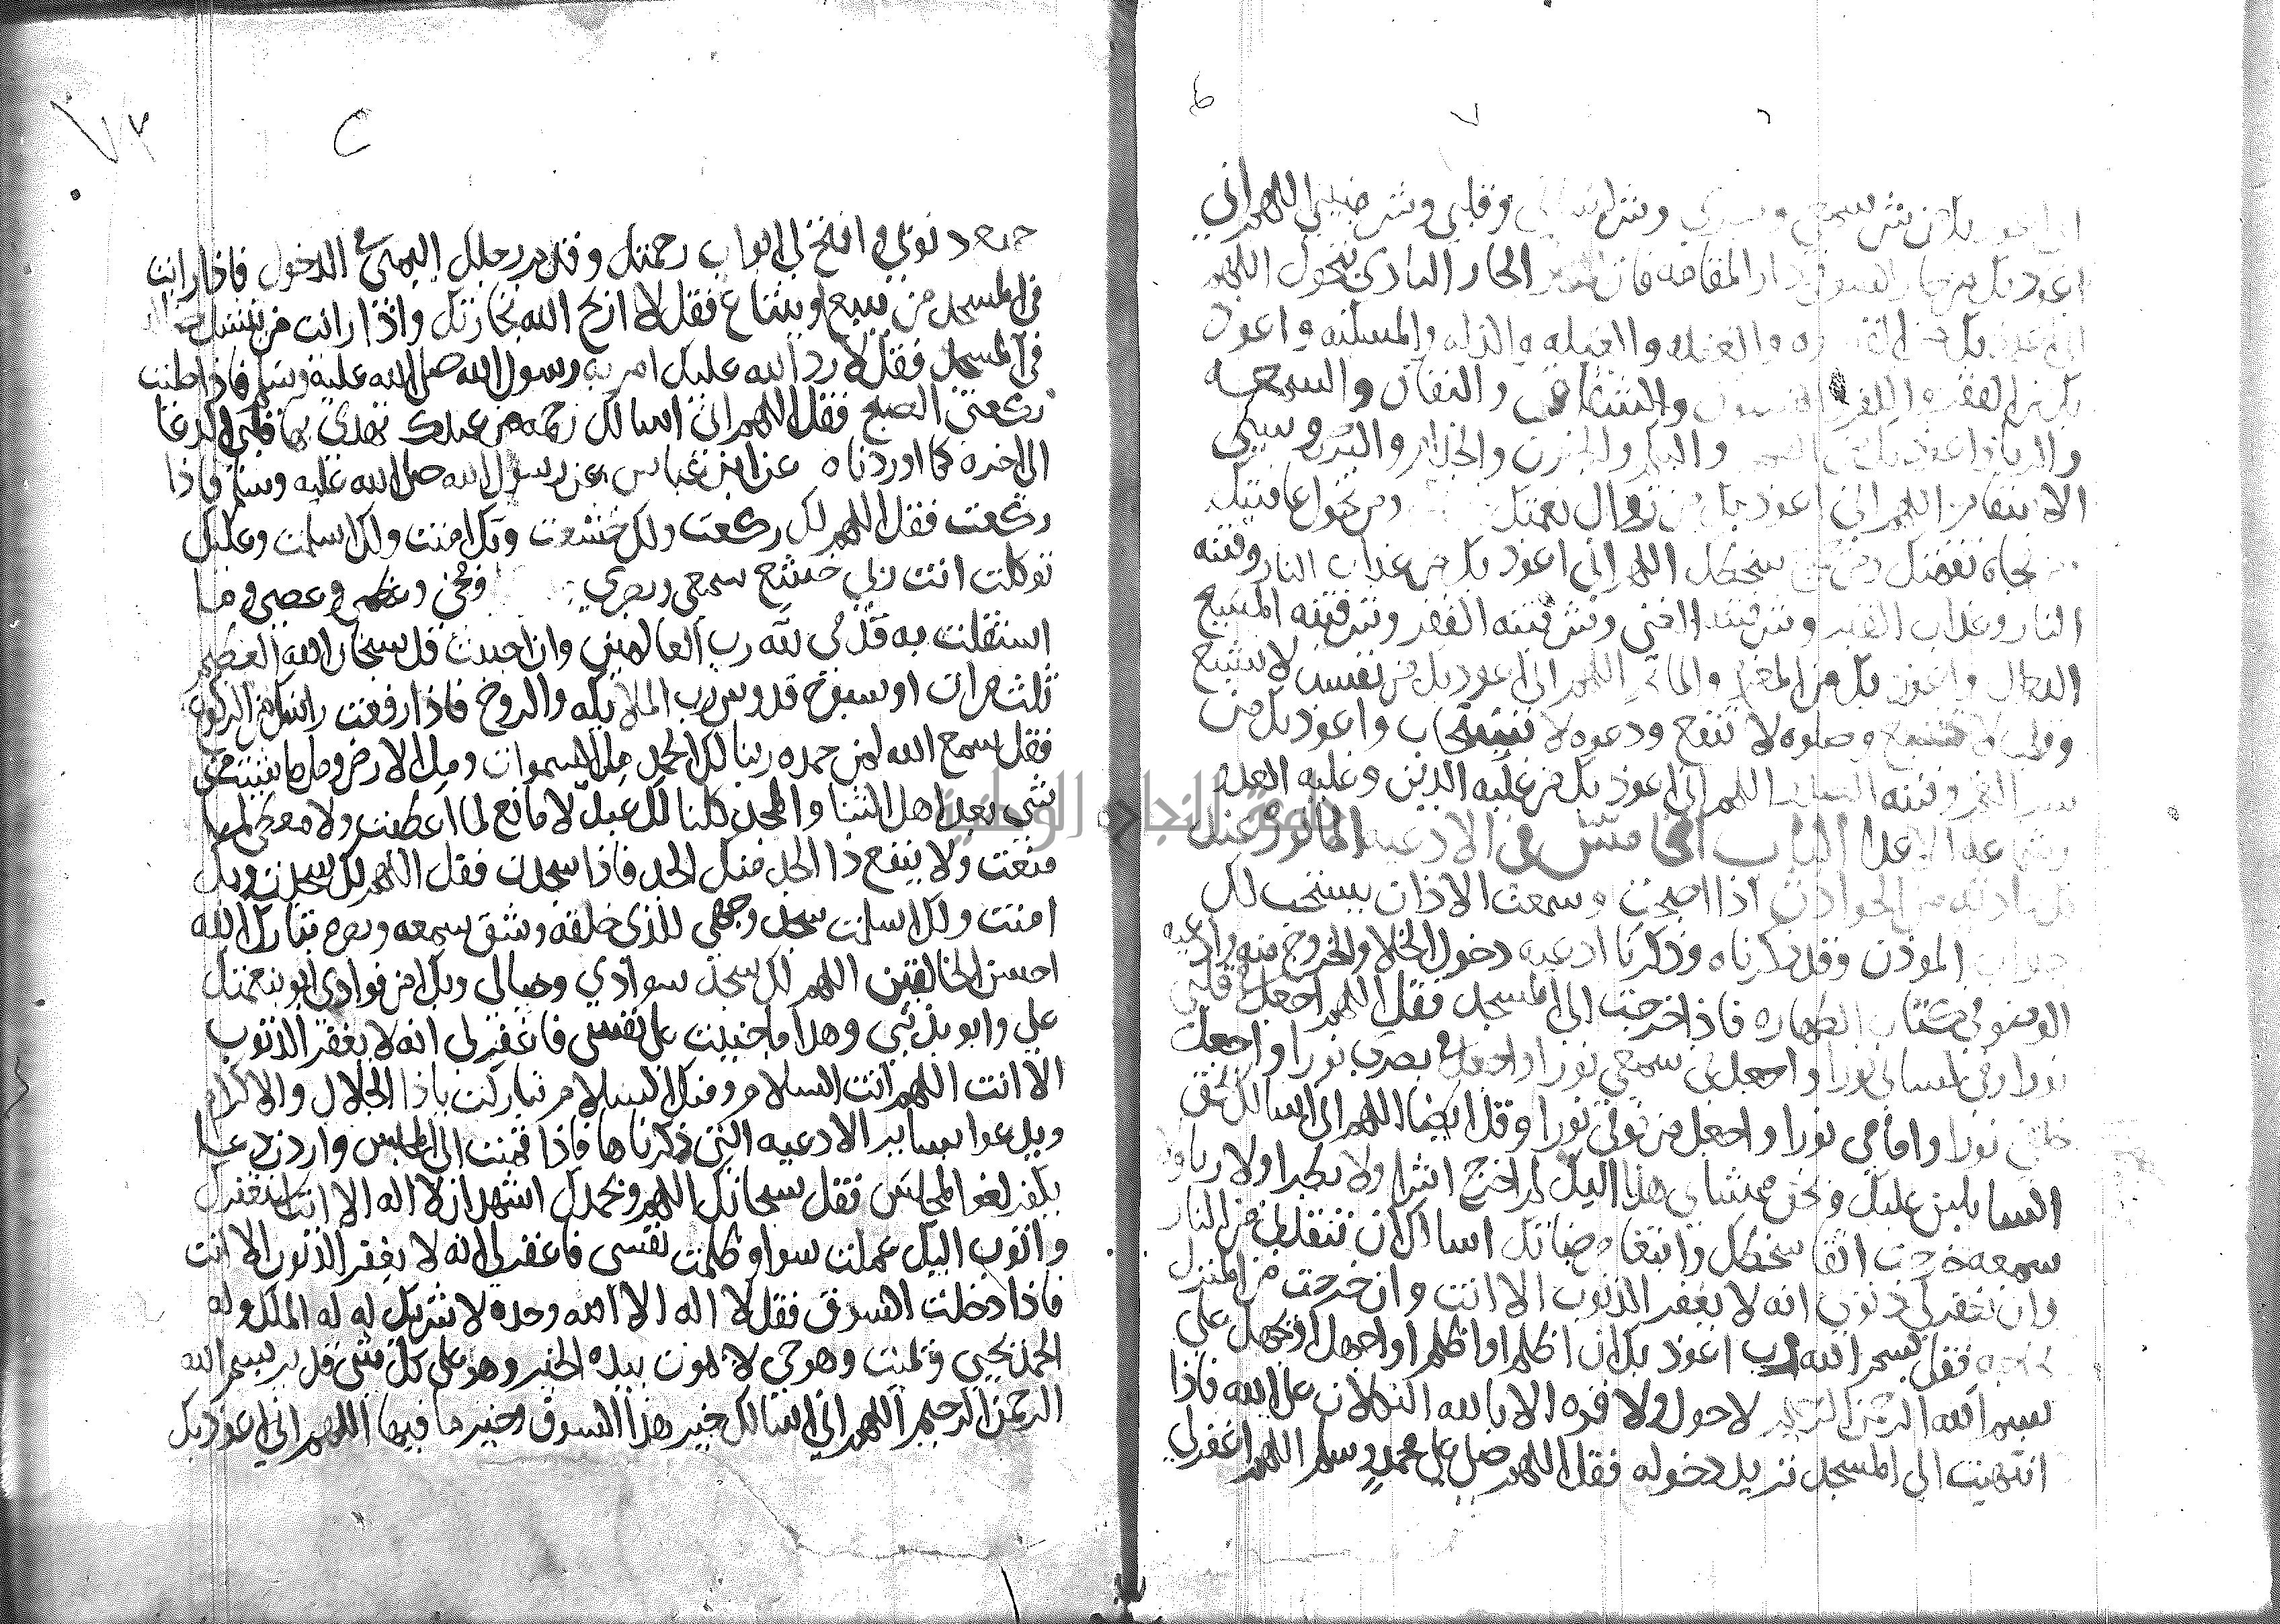 اعوذ بك من شر سمعي وبصري وشر لساني وقلبي وشر منيي اللهم اني
اعوذ بك من جار السوء في دار المقامه فان جار البادي يتحول اللهم
اني اعوذ بك من القسوه والغفله والعيله والذله والمسكنه واعوذ
بك من الفقر والكفر والفسوق والشقاق والنفاق والسمعه
والريا واعوذ بك من الصمم والبكم والجنون والجذام والبرص وسيي
الاسقام اللهم اني اعوذ بك من زوال نعمتك ومن تحول عافيتك
ومن فجاه نقمتك ومن جميع سخطك اللهم اني اعوذ بك من عذاب النار وفتنه
النار وعذاب القبر وشر فتنه الغنى وشر فتنه الفقر وشر فتنه المسيح
الدجال واعوذ بك من المغرم والماثم اللهم اني اعوذ بك من نفس لا تشبع
وقلب لا يخشع وصلوه لا تنفع ودعوه لا تستجاب واعوذ بك من
وفتنه اللهم اني اعوذ بك من غلبه الدين وغلبه العدو
وشماته الاعدا الباب الخامس في الادعيه الماثوره عند
كل حادثه من الحوادث اذا اصبحت وسمعت الاذان يستحب لك
جواب الموذن وقد ذكرناه وذكرنا ادعيه دخول الخلا والخروج منه وادعيه
الوضو في كتاب الطهاره فاذا خرجت الى المسجد فقل اللهم اجعل في قلبي
نورا وفي لساني نورا واجعل في سمعي نورا واجعل في بصري نورا واجعل
خلفي نورا وامامي نورا واجعل من فوقي نورا وقل ايضا اللهم اني اسالك بحق
السايلين عليك وبحق ممشاي هذا اليك لم اخرج اشرا ولا بطرا ولا ريا ولا
سمعه خرجت اتقا سخطك وابتغا مرضاتك اسالك ان تنقذني من النار
وان تغفر لي ذنوبي انه لا يغفر الذنوب الا انت وان خرجت من المنزل
لحاجه فقل بسم الله رب اعوذ بك ان اظلم او اظلم او اجهل او يجهل علي
بسم الله الرحمن الرحيم لا حول ولا قوه الا بالله التكلان على الله فاذا
انتهيت الى المسجد تريد دخوله فقل اللهم صل على محمد وسلم اللهم اغفر لي
جميع ذنوبي وافتح لي ابواب رحمتك وقدم رجلك اليمنى في الدخول فاذا رايت
في المسجد من يبيع او يبتاع فقل لا اربح الله تجارتك واذا رايت من ينشد ضاله
في المسجد فقل لا رد الله عليك امر به رسول الله صلى الله عليه وسلم فاذا صليت
ركعتي الصبح فقل اللهم اني اسالك رحمه من عندك تهدي بها قلبي الدعا
الى اخره كما اوردناه عن ابن عباس عن رسول الله صلى الله عليه وسلم فاذا
ركعت فقل اللهم لك ركعت ولك خشعت وبك امنت ولك اسلمت وعليك
توكلت انت ربي خشع سمعي وبصري ومخي وعظمي وعصبي وما
استقلت به قدمي لله رب العالمين وان احببت قل سبحان الله العظيم
ثلث مرات او سبوح قدوس رب الملايكه والروح فاذا رفعت راسك من الركوع
فقل سمع الله لمن حمده ربنا لك الحمد مل السموات ومل الارض ومل ما شيت من
شي بعد اهل الثنا والمجد كلنا لك عبد لا مانع لما اعطيت ولا معطي لما
منعت ولا ينفع ذا الجد منك الجد فاذا سجدت فقل اللهم لك سجدت وبك
امنت ولك اسلمت سجد وجهي للذي خلقه وشق سمعه وبصره تبارك الله
احسن الخالقين اللهم لك سجد سوادي وخيالي وبك امن فوادي ابو بنعمتك
علي وابو بذنبي وهذا ما جنيت على نفسي فاغفر لي انه لا يغفر الذنوب
الا انت اللهم انت السلام ومنك السلام تباركت ياذا الجلال والاكرام
ويدعوا بساير الادعيه التي ذكرناها فاذا قمت الى المجلس واردت دعا
يكفر لغو المجلس فقل سبحانك اللهم وبحمدك اشهد ان لا اله الا انت استغفرك
واتوب اليك عملت سوا وظلمت نفسي فاغفر لي انه لا يغفر الذنوب الا انت
فاذا دخلت السوق فقل لا اله الا الله وحده لا شريك له له الملك وله
الحمد يحيي ويميت وهو حي لا يموت بيده الخير وهو على كل شي قدير بسم الله
الرحمن الرحيم اللهم اني اسالك خير هذا السوق وخير ما فيها اللهم اني اعوذ بك